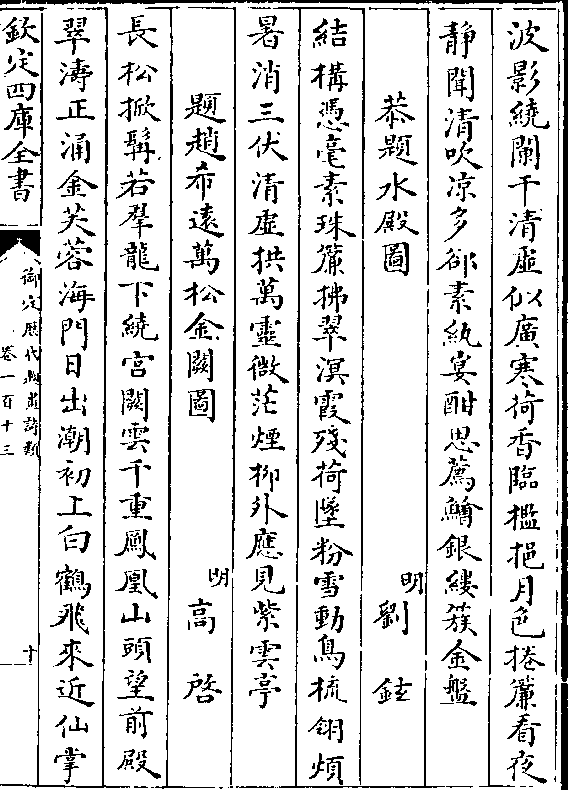 波影繞闌干清虛似廣寒荷香臨檻挹月色捲簾看夜
靜聞清吹涼多郤素紈宴酣思薦鱠銀縷簇金盤
恭題水殿圖
明劉鉉
結搆憑毫素珠簾拂翠溟霞殘荷墜粉雪動鳥梳翎煩
暑消三伏清虛拱萬靈微茫煙柳外應見紫雲亭
題趙希遠萬松金闕圖
明高啓
長松掀髯若羣龍下繞宮闕雲千重鳳凰山頭望前殿
翠濤正涌金芙蓉海門日出潮初上白鶴飛來近仙掌
欽定四庫全書
御定歷代題畫詩類
卷一百十三
十